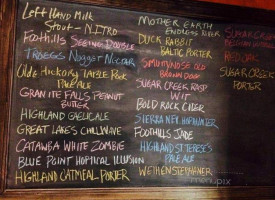 Left Hand Milk
Stout - Nitro
Foothills Seeing Double
Troegs Nugget Nectar
Olde Hickory Table Rock
Pale Ale
Granite Falls Peanut
Butter
Highland Gaelic Ale
Great Lakes Chillwave
Catawba White Zombie
Blue Point Hoptical Illusion
Highland Oatmeal Porter
Mother Earth
Endless River
Duck Rabbit
Baltic Porter
Smuttynose Old
Brown Dog
Sugar Creek Rasp
Wit
Bold Rock Cider
Sierra Nev Hopwater
Foothills Jade
Highland St. Terese's
Pale Ale
Weihenstephaner
Sugar Creek
Red Oak
Sugar Creek
Porter